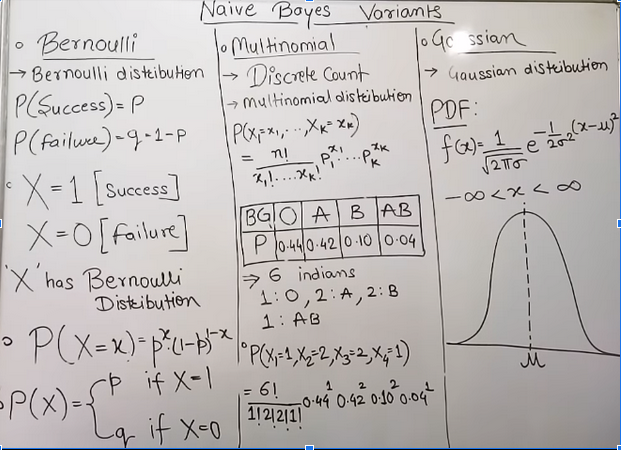 Naive Bayes Variants
o Bernoulli
→ Bernoulli distribution
P(Success) = P
P(failure) = q = 1-p
X = 1 [Success]
X = 0 [Failure]
'X' has Bernoulli
Distribution
o P(X=x) = p^x (1-p)^1-x
P(X) = { p if X=1
q if X=0
o Multinomial
→ Discrete Count
→ multinomial distribution
P(X₁=x₁, ..., Xₖ=xₖ)
= n! / x₁!....xₖ! p₁^x₁ .... pₖ^xₖ
BG O A B AB
P 0.44 0.42 0.10 0.04
⇒ 6 indians
1:O, 2:A, 2:B
1:AB
o P(X₁=1, X₂=2, X₃=2, X₄=1)
= 6! / 1!2!2!1! 0.44^1 0.42^2 0.10^2 0.04^1
o Gaussian
→ Gaussian distribution
PDF:
f(x) = 1/√2πσ e^-1/2σ² (x-μ)²
-∞ < x < ∞
μ